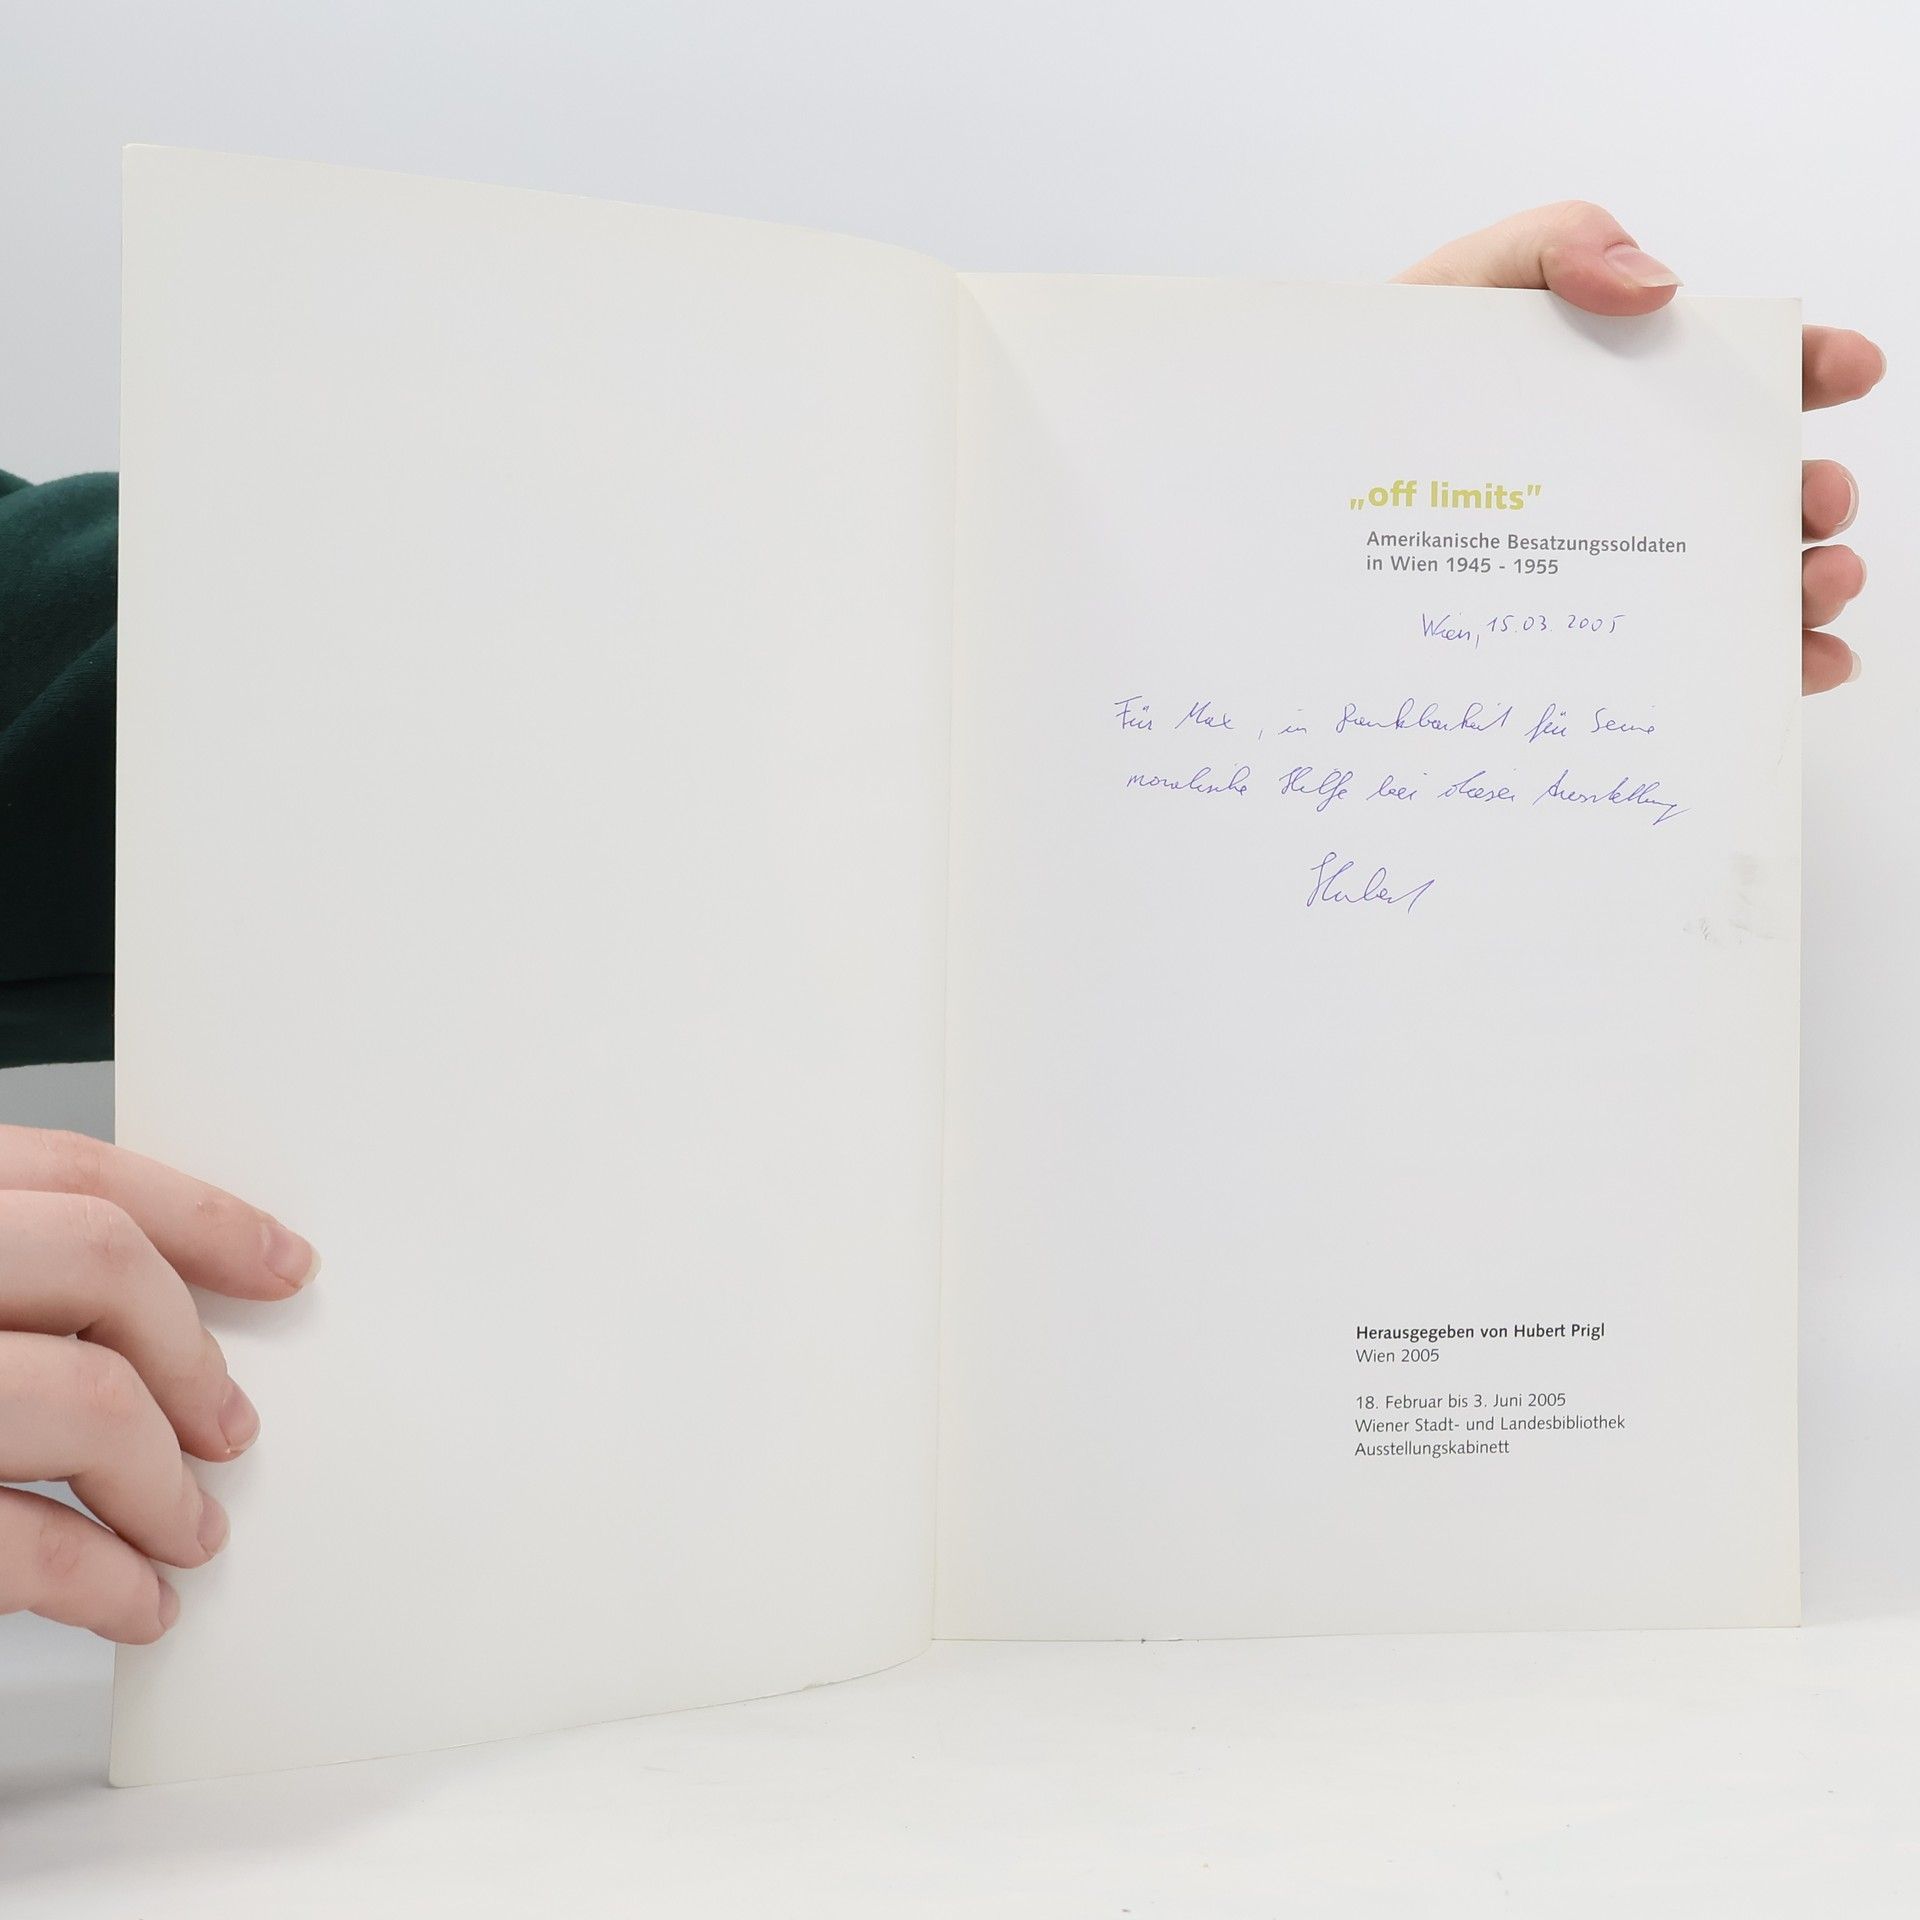 „off limits”
Amerikanische Besatzungssoldaten
in Wien 1945 - 1955
Wien, 15.03.2005
Für Max, in Dankbarkeit für seine
moralische Hilfe bei dieser Ausstellung
Hubert
Herausgegeben von Hubert Prigl
Wien 2005
18. Februar bis 3. Juni 2005
Wiener Stadt- und Landesbibliothek
Ausstellungskabinett